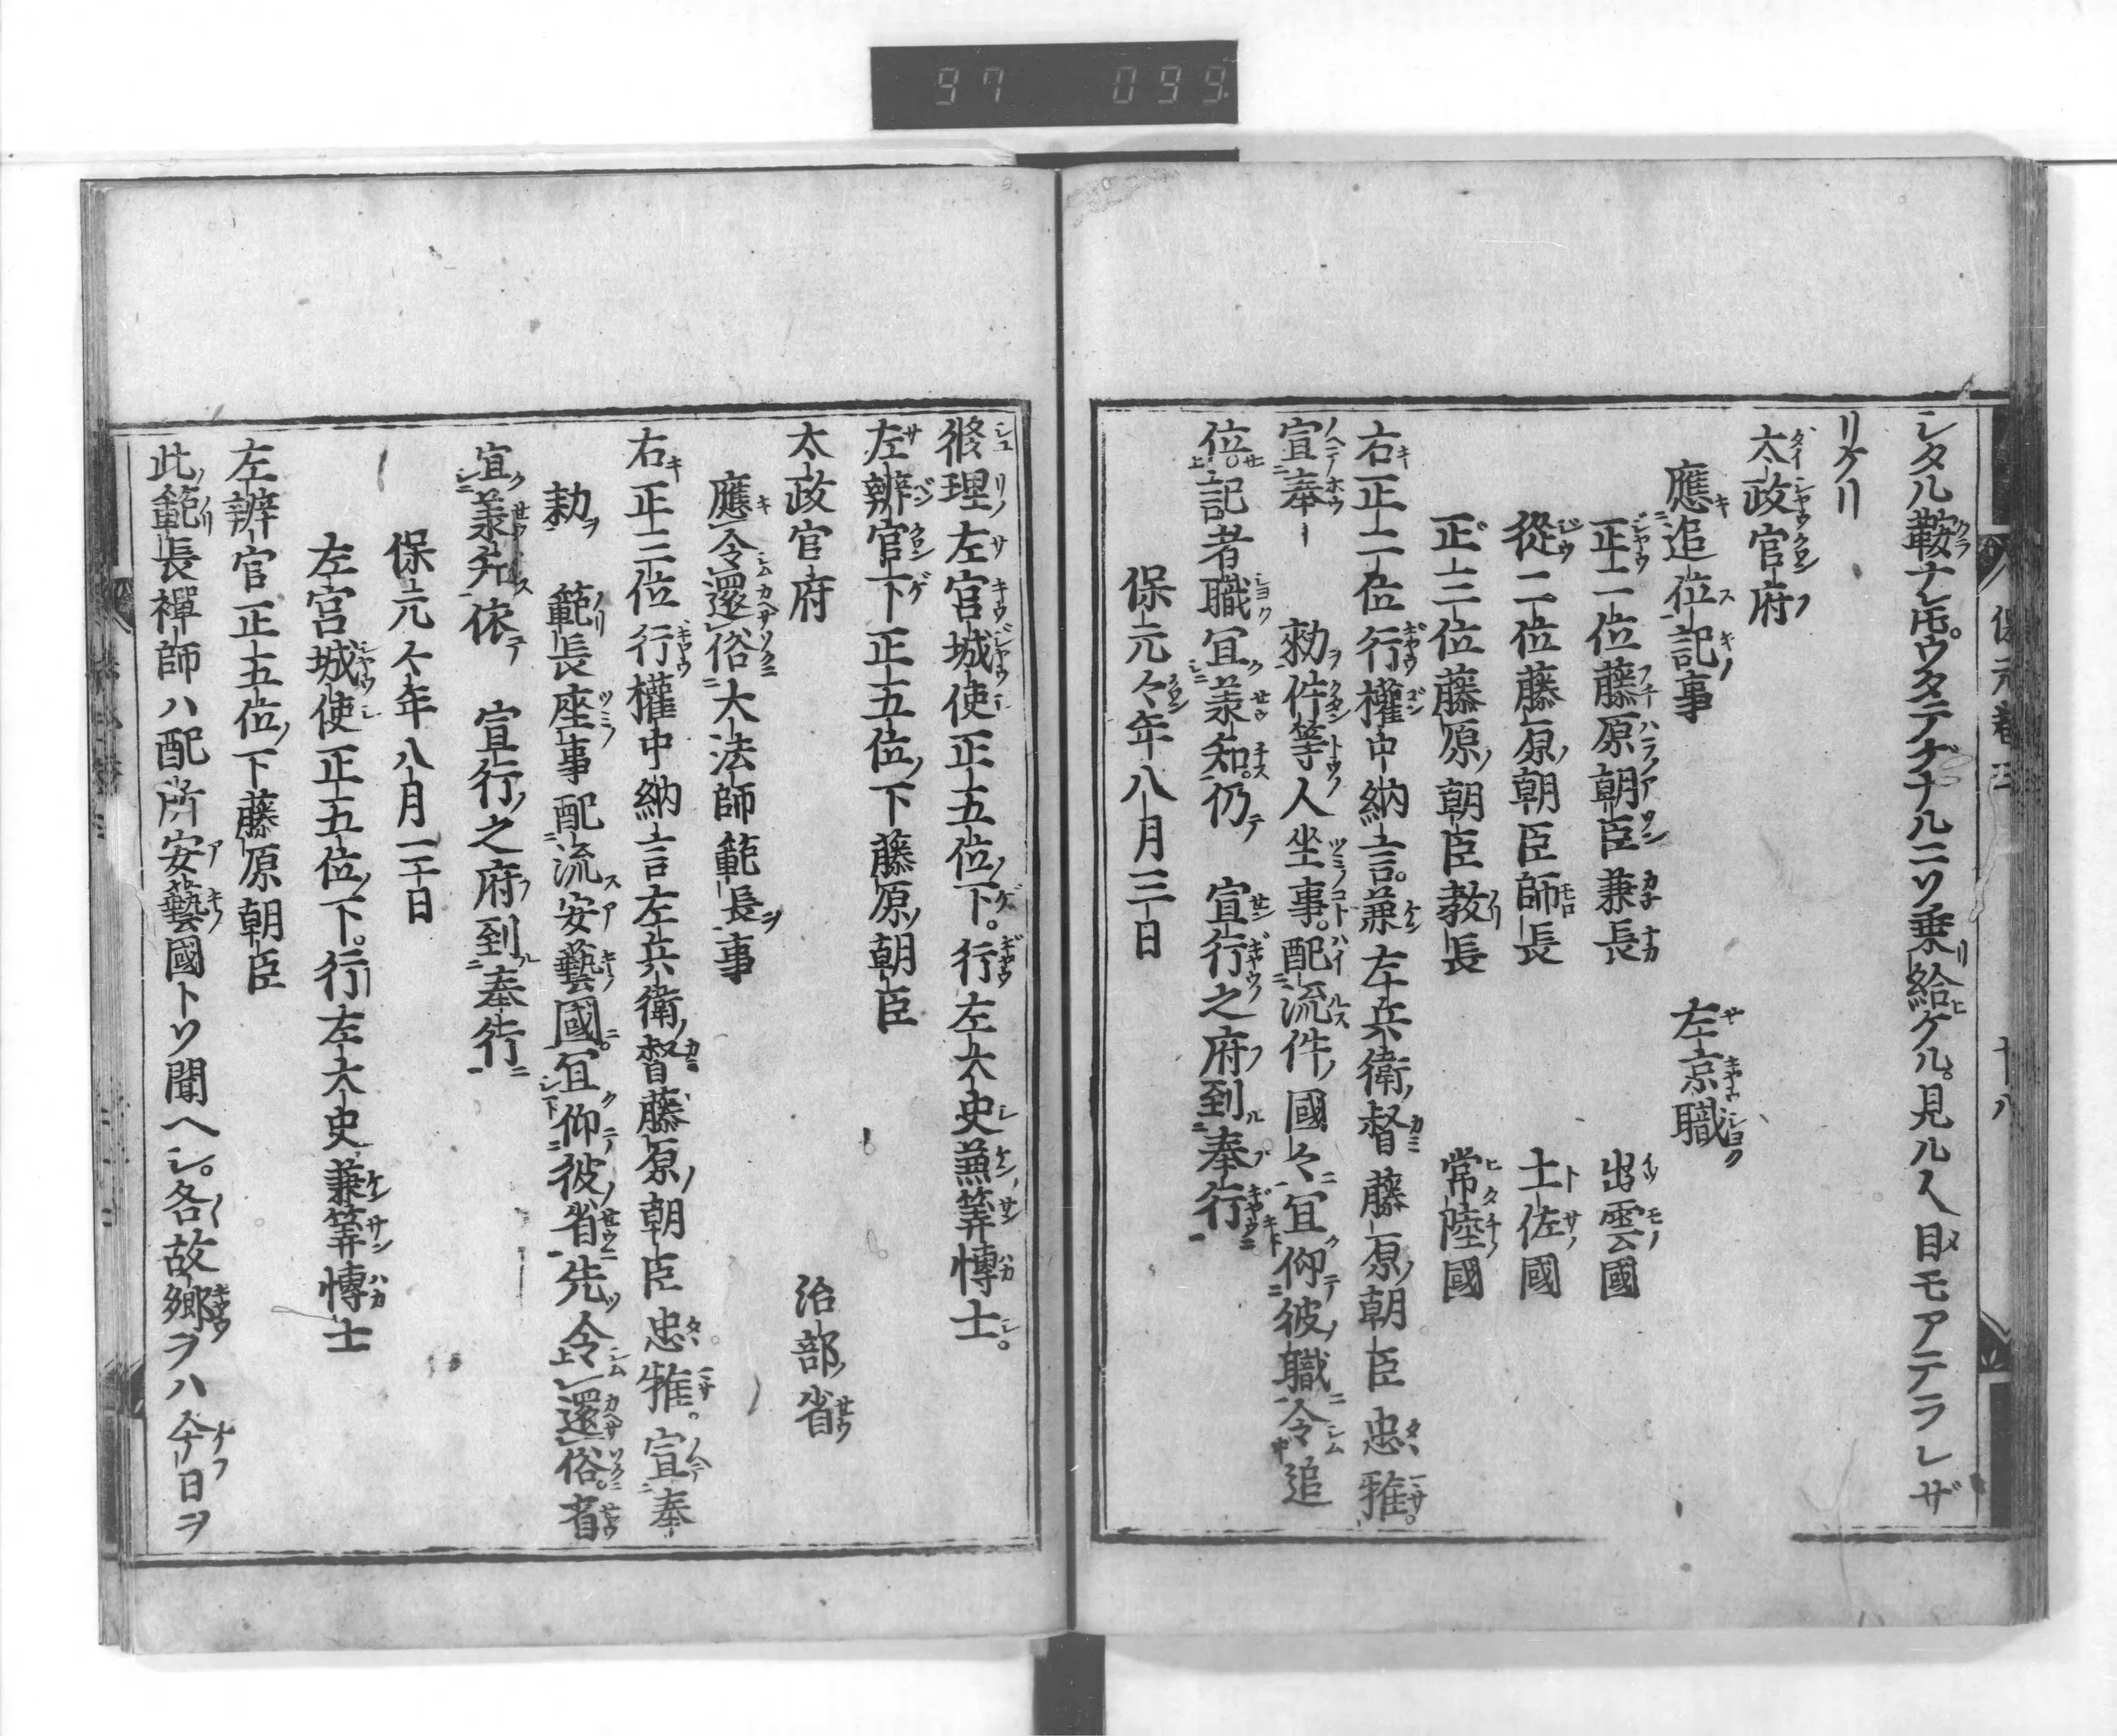 97 099
シタル鞍ナレ𪜈。ウタテゲナルニソ乗給ケル。見ル人目モアテラレザ
リケリ
太政官府 左京職
應追位記事
正二位藤原朝臣兼長 出雲國
從二位藤原朝臣師長 土佐國
正三位藤原朝臣教長 常陸國
右正二位行權中納言。兼左兵衛督藤原朝臣忠雅。
宣奉 勅件等人坐事。配流件國々宜仰彼職令追
位記者職宜兼知。仍 宣行之府到奉行
保元々年八月三日
修理左官城使正五位下。行左大史兼筭博士。
左辨官下正五位下藤原朝臣
太政官府 治部省
應令還俗大法師範長事
右正三位行權中納言左兵衛督藤原朝臣忠雅。宣奉
勅 範長座事配流安藝國。宜仰彼省先令還俗。省
宜兼知依 宣行之府到奉行
保元々年八月 日
左宮城使正五位下。行左大史兼筭博士
左辨官正五位下藤原朝臣
此範長禪師ハ配所安藝國トソ聞ヘシ。各故郷ヲハ今日ヲ
保元巻三 十八